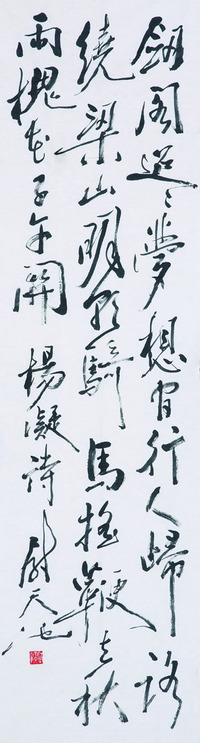 劍閣迢迢夢想間行人歸路
繞梁山明朝騎馬搖鞭去秋
雨槐花子午關 楊凝詩 尉天池